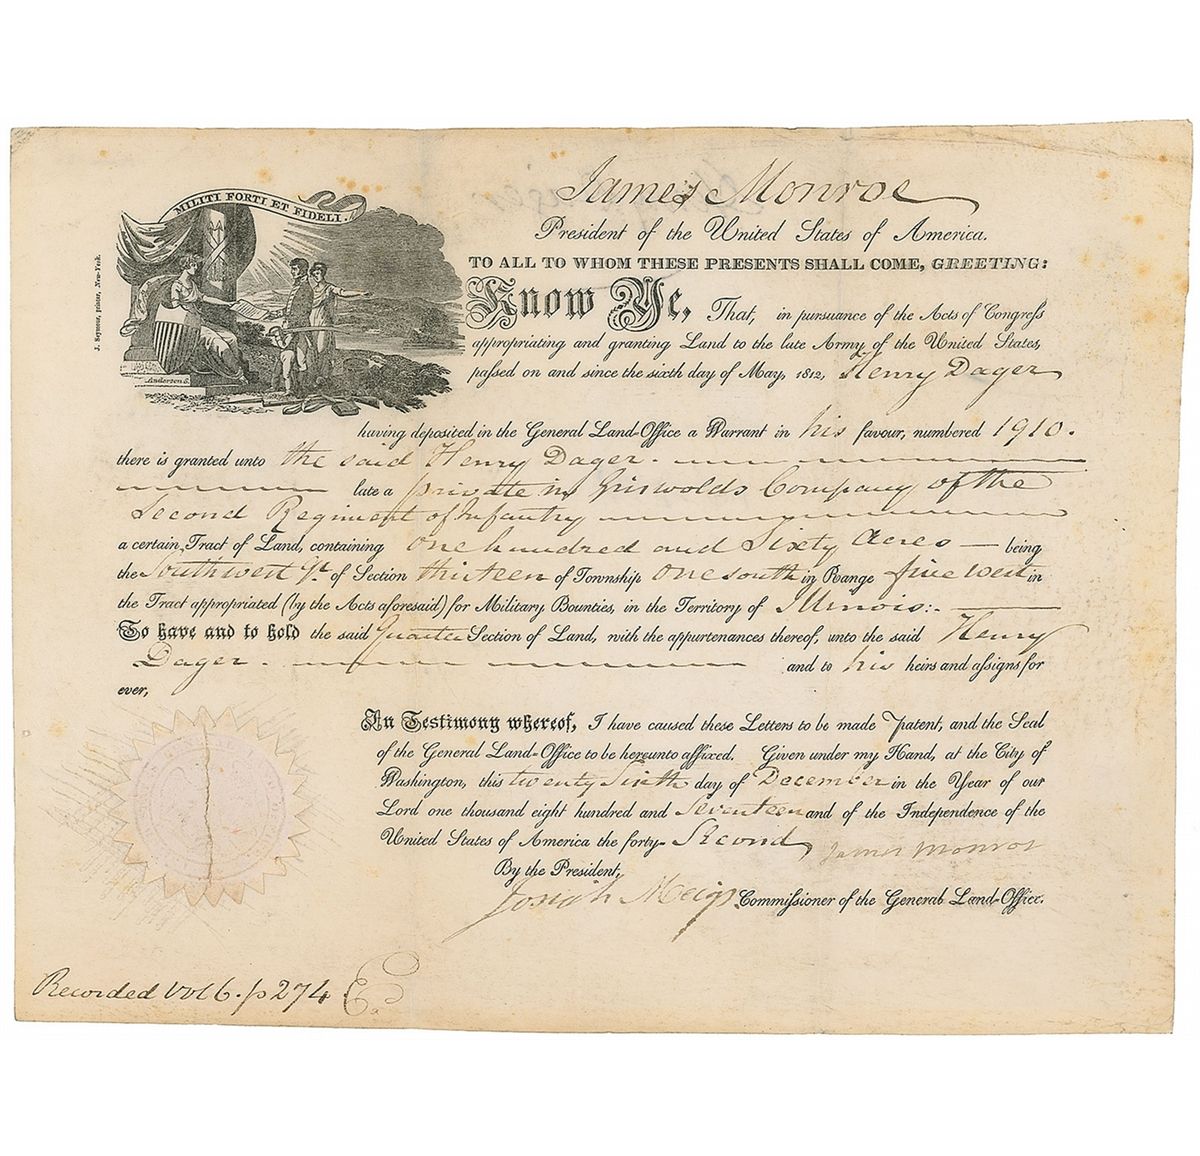 MILITI FORTI ET FIDELI.
J. Seymour, printer, New-York.
Anderson S.
James Monroe
President of the United States of America.
TO ALL TO WHOM THESE PRESENTS SHALL COME, GREETING:
Know Ye, That, in pursuance of the Acts of Congress
appropriating and granting Land to the late Army of the United States,
passed on and since the sixth day of May, 1812, Henry Dager
having deposited in the General Land-Office a Warrant in his favour, numbered 1910.
there is granted unto the said Henry Dager.
late a private in Griswolds Company of the
Second Regiment of Infantry
a certain Tract of Land, containing One hundred and Sixty Acres — being
the Southwest 1/4 of Section thirteen of Township One south in Range five West in
the Tract appropriated (by the Acts aforesaid) for Military Bounties, in the Territory of Illinois:.
To have and to hold the said Quarter Section of Land, with the appurtenances thereof, unto the said Henry
Dager. and to his heirs and assigns for
ever,
In Testimony whereof, I have caused these Letters to be made Patent, and the Seal
of the General Land-Office to be hereunto affixed. Given under my Hand, at the City of
Washington, this twenty Sixth day of December in the Year of our
Lord one thousand eight hundred and Seventeen and of the Independence of the
United States of America the forty-Second
James Monroe
By the President,
Josiah Meigs Commissioner of the General Land-Office.
Recorded vol 6. p 274 E.